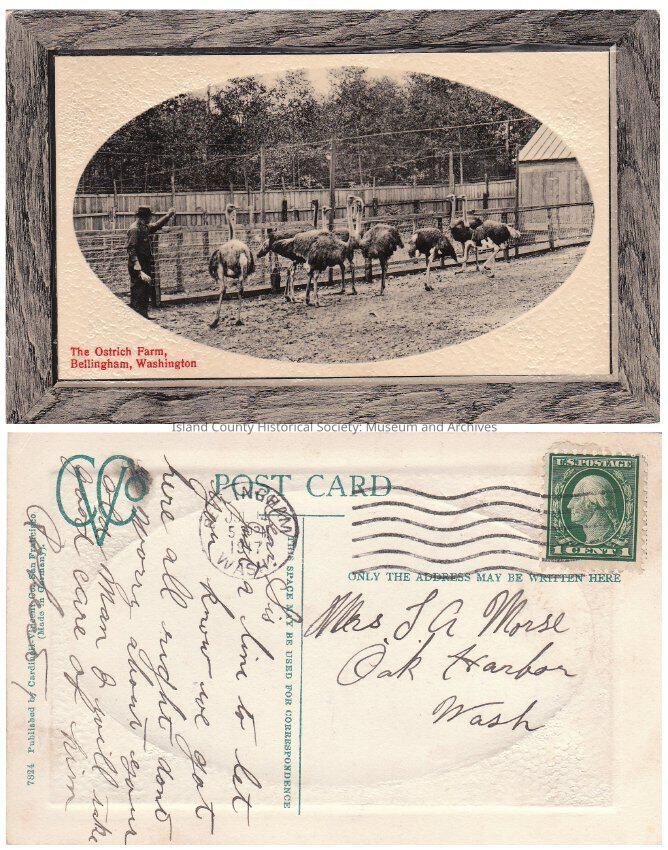 The Ostrich Farm,
Bellingham, Washington
Island County Historical Society: Museum and Archives
POST CARD
U.S. POSTAGE
1 CENT 1
INGHAM
WASH
THIS SPACE MAY BE USED FOR CORRESPONDENCE
ONLY THE ADDRESS MAY BE WRITTEN HERE
Mrs. L A Morse
Oak Harbor
Wash
Dear Sis
Just a line to let
you know we got
here all right dont
worry about your
Old Man I will take
good care of him
7824 Published by Cardinell-Vincent Co., San Francisco
(Made in Germany)